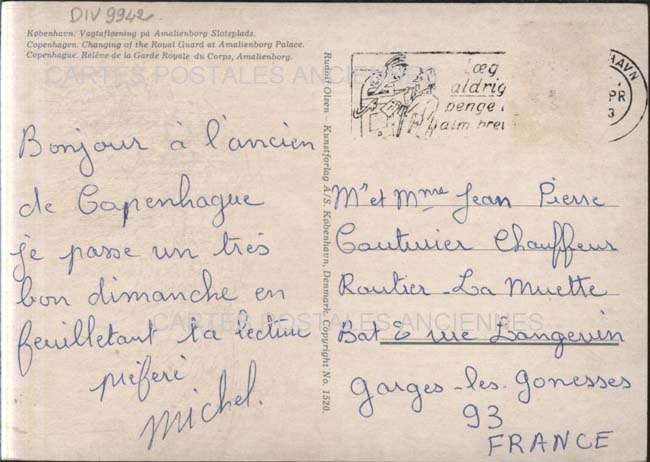 DIV 9942
København. Vagtafløsning på Amalienborg Slotsplads.
Copenhagen. Changing of the Royal Guard at Amalienborg Palace.
Copenhague. Relève de la Garde Royale du Corps, Amalienborg.
CARTES POSTALES ANCIENNES
Bonjour à l'ancien
de Copenhague
je passe un très
bon dimanche en
feuilletant ta lecture
préféré
Michel.
Rudolf Olsen – Kunstforlag A/S. København, Denmark. Copyright No. 1520.
læg
aldrig
penge i
alm brev
HAVN
PR
3
Mr et Mme Jean Pierre
Couturier Chauffeur
Routier - La Muette
Bat E rue Langevin
Garges-les-Gonesses
93
FRANCE
CARTES POSTALES ANCIENNES